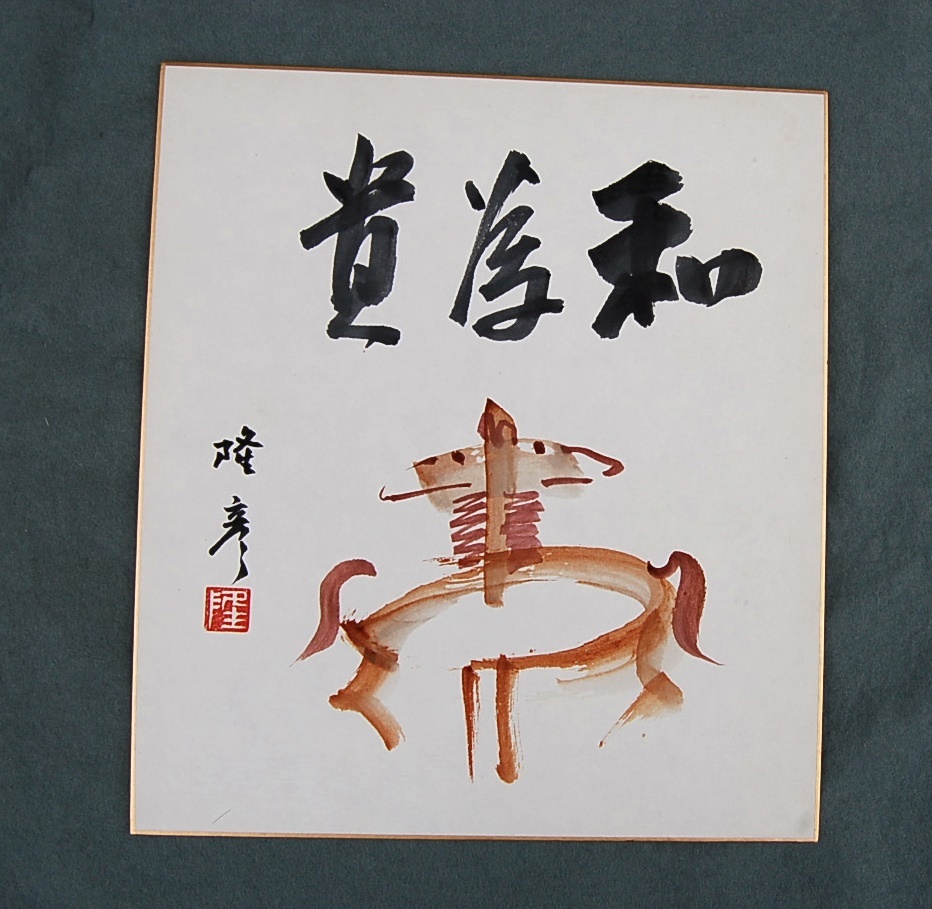 和為貴
隆彦
隆